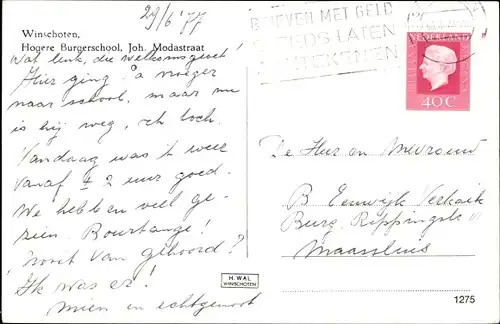 29/6 '77
Winschoten,
Hogere Burgerschool, Joh. Modastraat
BRIEVEN MET GELD
STEEDS LATEN
AANTEKENEN
NEDERLAND
40 C
Wat leuk, die welkomsgroet!
Hier ging Pa vroeger
naar school, maar nu
is hij weg, ch toch.
Vandaag was 't weer
vanaf ± 2 uur goed.
We hebben veel ge-
zien. Bourtange!
nooit van gehoord?
Ik was er!
Mien en echtgenoot
De Heer en Mevrouw
B Eeuwijk Verkaik
Burg.
Maassluis
H. WAL
WINSCHOTEN
1275